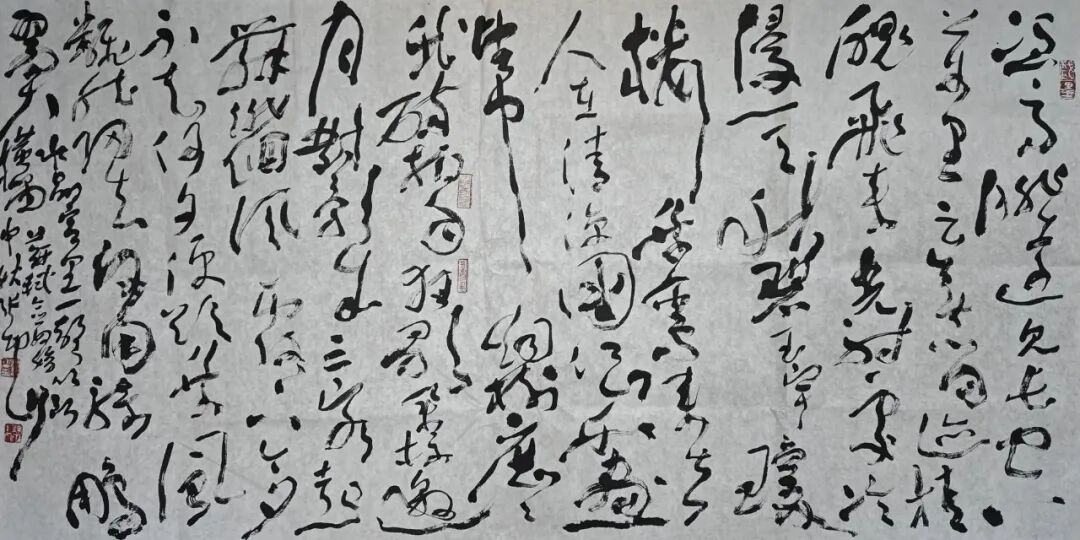 凭高眺远见长空
万里云无留迹桂
魄飞来光射处冷
浸一天秋碧玉宇琼
楼乘鸾来去
人在清凉国江山如画
望中烟树历历
我醉拍手狂歌举杯邀
月對影成三客起
舞徘徊风露下今夕
不知何夕便欲乘风
翻然归去何用骑鹏
翼水晶宫里一声吹断
横笛苏轼念奴娇
中秋